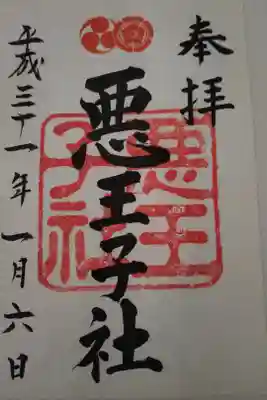 奉拝
悪王子社
悪王
子社
平成三十一年一月六日